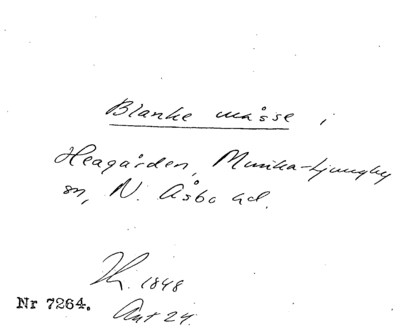 Blanke måsse i
Heagården, Munka-Ljungby
sn, N. Åsbo hd.
1848
Nr 7264.
Ant 24